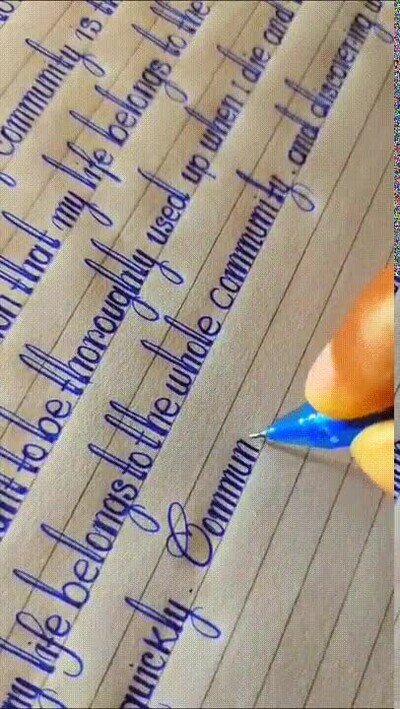 community is
on that my life belongs to the
to be thoroughly used up when i die and
my life belongs to the whole community. and discovering
quickly. Commun